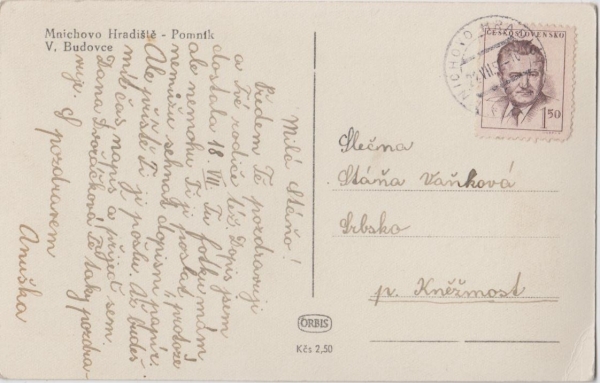 Mnichovo Hradiště - Pomník
V. Budovce
Milá Stáňo!
Předem Tě pozdravuji
a Tvé rodiče též. Dopis jsem
dostala 18. VII. Tu fotku mám
ale nemohu Ti ji poslat, protože
nemůžu sehnat dopisní papír.
Ale příště Ti ji pošlu. Až budeš
mít čas, napiš a přijeď sem.
Dana Dvořáčková Tě taky pozdra-
vuje. S pozdravem
Anuška
MNICHOVO HRAD
ČESKOSLOVENSKO
1.50
Slečna
Stáňa Vaňková
Srbsko
p. Kněžmost
ORBIS
Kčs 2,50